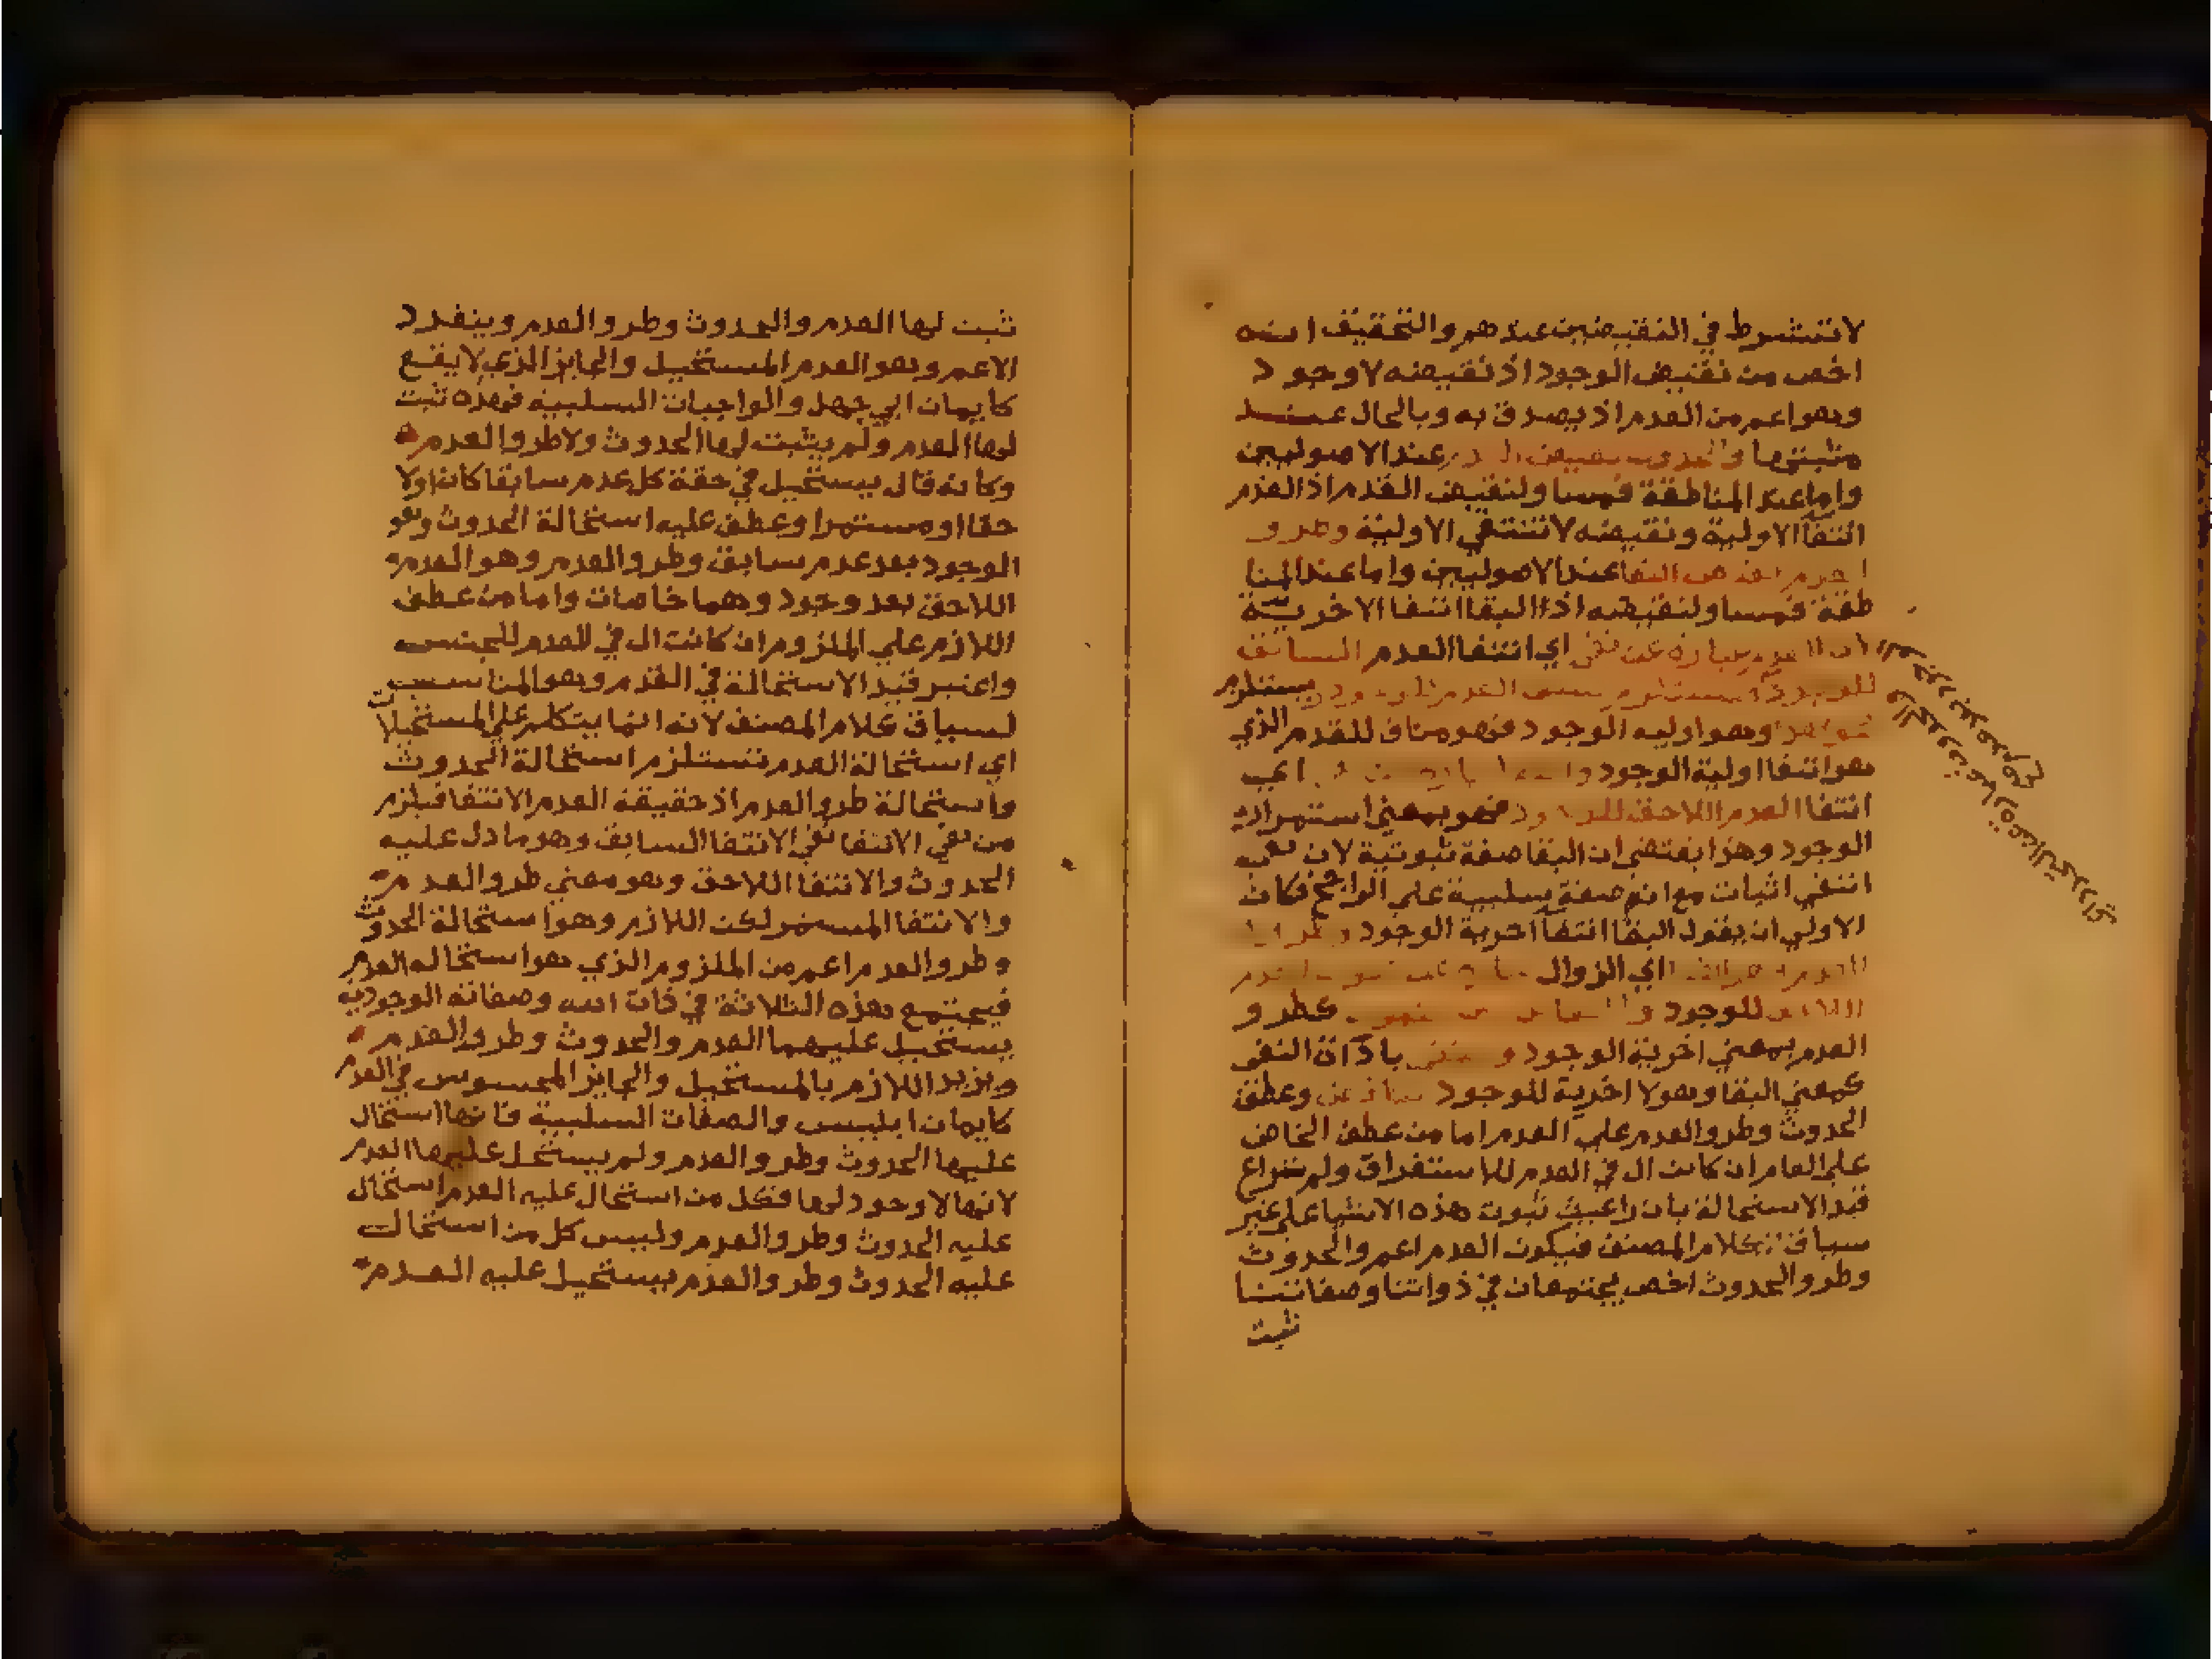 لا تشترط في النقيضين عندهم والتحقيق انه
اخص من نقيض الوجود اذ نقيضه لا وجود
وهو اعم من العدم اذ يصدق به وبالحال عند
مثبتها والحدوث نقيض القدم عند الاصوليين
واما عند المناطقة فمساو لنقيض القدم اذ القدم
انتفا الاولية ونقيضه لا تنتفي الاولية وطرو
العدم نقيض البقا عند الاصوليين واما عند المنا
طقة فمساو لنقيضه اذ البقا انتفا الاخرية
لان القدم عبارة عن نفي اي انتفا العدم السابق
للوجود سبق العدم للوجود ويستلزم
وهو اولية الوجود فهو مناف للقدم الذي
هو انتفا اولية الوجود والبقا عبارة عن نفي اي
انتفا العدم اللاحق للوجود فهو بمعني استمرار
الوجود وهذا يقتضي ان البقا صفة ثبوتية لان نفي
النفي اثبات مع انه صفة سلبية علي الراجح فكان
الاولي ان يقول البقا انتفا اخرية الوجود وطرو
العدم اي الزوال العدم
اللاحق للوجود فطرو
العدم بمعني اخرية الوجود با ذات النفي
كمعني البقا وهو لا اخرية للوجود وعطف
الحدوث وطرو العدم علي العدم اما من عطف الخاص
علي العام ان كانت ال في العدم للاستغراق ولم تراع
قيد الاستحالة بان راعيت ثبوت هذه الاشيا علي غير
سياق كلام المصنف فيكون العدم اعم والحدوث
وطرو الحدوث اخص يجتمعان في ذواتنا وصفاتنا
ثبت
ثبت لها العدم والحدوث وطرو العدم وينفرد
الاعم وهو العدم المستحيل والجايز الذي لا يقع
كايمان ابي جهل والواجبات السلبيه فهذه ثبت
لها العدم ولم يثبت لها الحدوث ولا طرو العدم
وكانه قال يستحيل في حقة كل عدم سابقا كان اولا
حقا او مستمرا وعطف عليه استحالة الحدوث وهو
الوجود بعد عدم سابق وطرو العدم وهو العدم
اللاحق بعد وجود وهما خاصان واما من عطف
اللازم علي الملزوم ان كانت ال في العدم للجنس
واعتبر قيد الاستحالة في القدم وهو المناسب
لسياق كلام المصنف لانه انما يتكلم علي المستحيلات
اي استحالة العدم تستلزم استحالة الحدوث
واستحالة طرو العدم اذ حقيقة العدم الانتفا فيلزم
من نفي الانتفا نفي الانتفا السابق وهو ما دل عليه
الحدوث والانتفا اللاحق وهو معني طرو العدم
والانتفا المستمر لكن اللازم وهو استحالة الحدوث
وطرو العدم اعم من الملزوم الذي هو استحاله العدم
فيجتمع هذه الثلاثة في ذات الله وصفاته الوجوديه
يستحيل عليهما العدم والحدوث وطرو العدم
ويزيد اللازم بالمستحيل والجايز المحسوس في العدم
كايمان ابليس والصفات السلبية فانها استحال
عليها الحدوث وطرو العدم ولم يستحل عليها العدم
لانها لا وجود لها فكل من استحال عليه العدم استحال
عليه الحدوث وطرو العدم وليس كل من استحال
عليه الحدوث وطرو العدم يستحيل عليه العدم